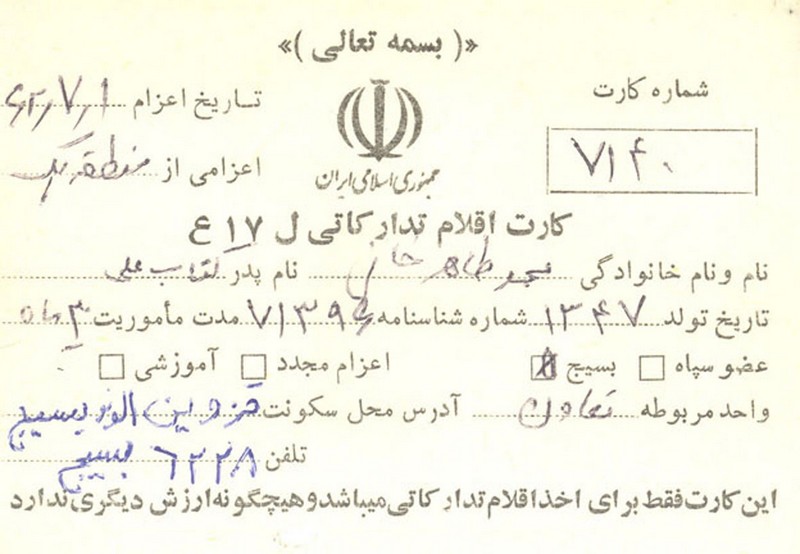 «( بسمه تعالی )»
شماره کارت
۷۱۴۰
جمهوری اسلامی ایران
تاریخ اعزام
اعزامی از منطقه یک
کارت اقلام تدارکاتی ل ۱۷ ع
نام و نام خانوادگی طاهرخانی نام پدر علی
تاریخ تولد ۱۳۴۷ شماره شناسنامه مدت مأموریت ۳ ماه
عضو سپاه بسیج اعزام مجدد آموزشی
واحد مربوطه تعاون آدرس محل سکونت قزوین بسیج
تلفن ۶۲۲۸ بسیج
این کارت فقط برای اخذ اقلام تدارکاتی میباشد و هیچگونه ارزش دیگری ندارد